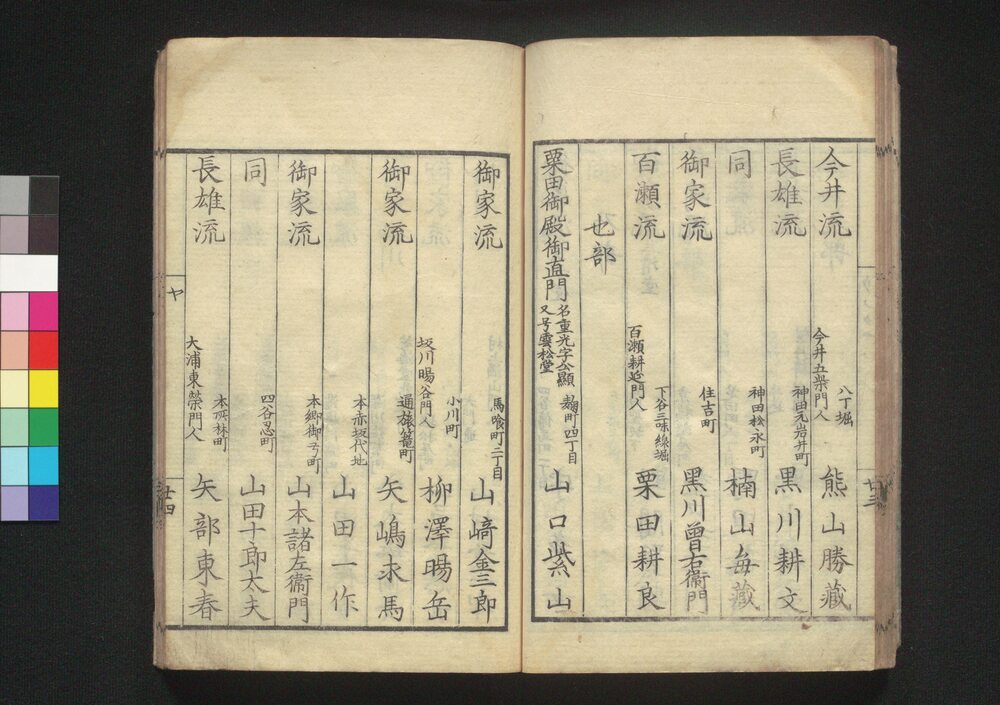 今井流 今井五栄門人 八丁堀 熊山勝藏
長雄流 神田元岩井町 黒川耕文
同 神田松永町 楠山毎藏
御家流 住吉町 黒川曽右衛門
百瀬流 百瀬耕延門人 下谷三味線堀 栗田耕良
也部
粟田御殿御直門 名重光字公顯 又号雲松堂 麹町四丁目 山口紫山
廿三
御家流 馬喰町二丁目 山﨑金三郎
坂川暘谷門人 小川町 柳澤暘岳
御家流 通旅篭町 矢嶋求馬
本赤坂代地 山田一作
御家流 本郷御弓町 山本諸左衛門
同 四谷忍町 山田十郎太夫
長雄流 大浦東榮門人 本所林町 矢部東春
ヤ
廿四